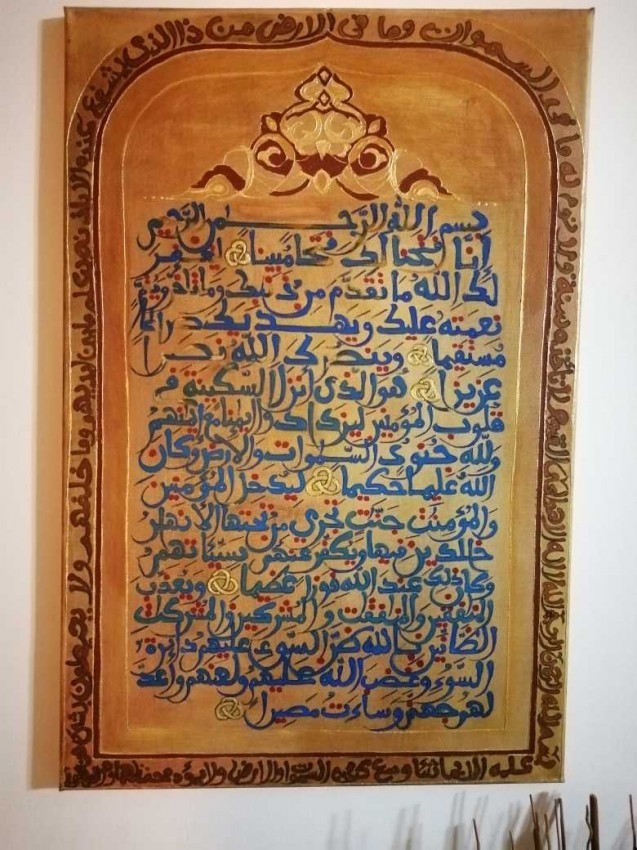 بسم الله الرحمن الرحيم
إنا فتحنا لك فتحا مبينا ليغفر
لك الله ما تقدم من ذنبك وما تأخر ويتم
نعمته عليك ويهديك صراطا
مستقيما وينصرك الله نصرا
عزيزا هو الذي أنزل السكينة في
قلوب المؤمنين ليزدادوا إيمانا مع إيمانهم
ولله جنود السموات والأرض وكان
الله عليما حكيما ليدخل المؤمنين
والمؤمنت جنت تجري من تحتها الأنهار
خالدين فيها ويكفر عنهم سيئاتهم
وكان ذلك عند الله فوزا عظيما ويعذب
المنفقين والمنفقت والمشركين والمشركت
الظانين بالله ظن السوء عليهم دائرة
السوء وغضب الله عليهم ولعنهم وأعد
لهم جهنم وساءت مصيرا
الله لا إله إلا هو الحي القيوم لا تأخذه سنة ولا نوم له ما في
السموات وما في الارض من ذا الذي يشفع
عنده إلا بإذنه يعلم ما بين أيديهم وما خلفهم ولا يحيطون بشيء من
علمه إلا بما شاء وسع كرسيه السموات والارض ولا يؤده حفظهما وهو